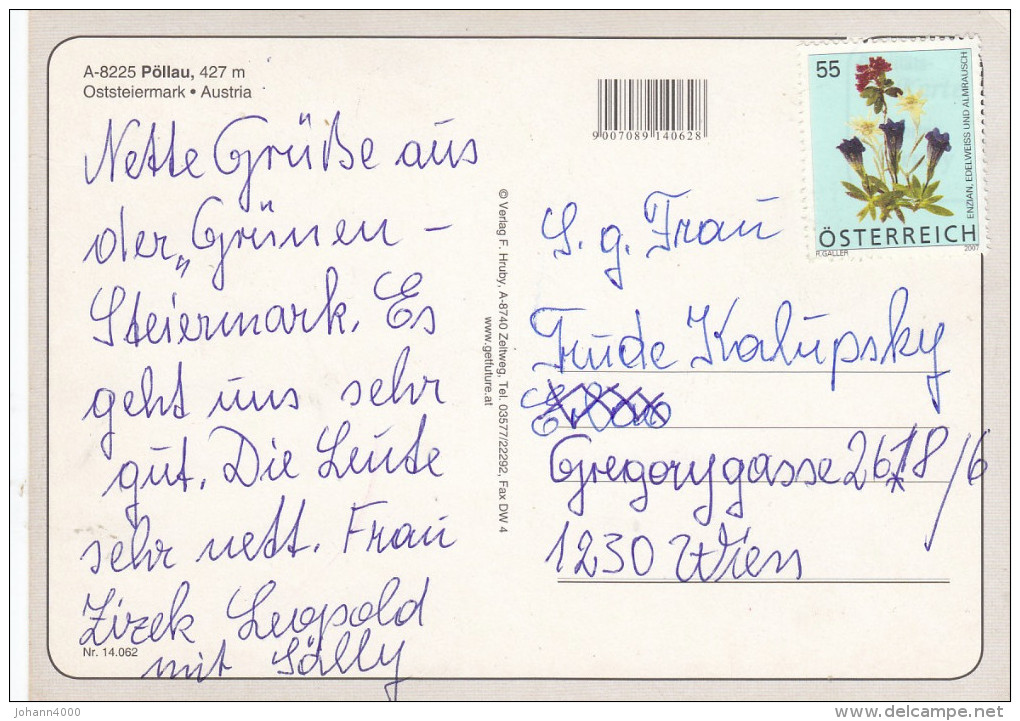 A-8225 Pöllau, 427 m
Oststeiermark • Austria
Nette Grüße aus
der „Grünen -
Steiermark. Es
geht uns sehr
gut. Die Leute
sehr nett. Frau
Zirek Leopold
mit Sally
Nr. 14.062
9 007089 140628
© Verlag F. Hruby, A-8740 Zeltweg, Tel. 03577/22292, Fax DW 4
www.getfuture.at
55
ENZIAN, EDELWEISS UND ALMRAUSCH
ÖSTERREICH
R. GALLER 2007
S. g. Frau
Trude Kalupsky
Gregorygasse 26 18/6
1230 Wien
johann4000
delcampe.net